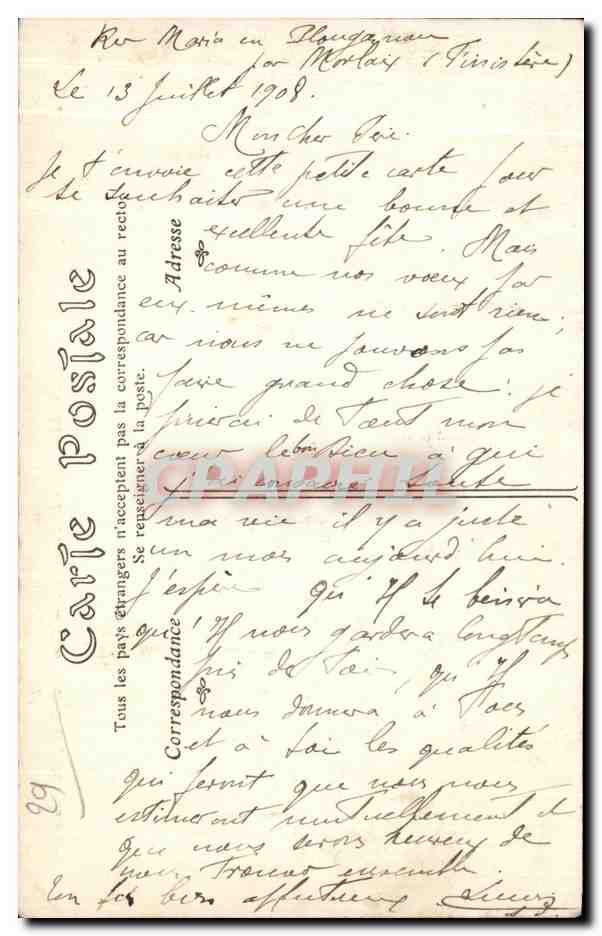 Ker Maria en Plouganou
par Morlaix (Finistère)
Le 13 Juillet 1908.
Mon cher Père.
Je t'envoie cette petite carte pour
te souhaiter une bonne et
excellente fête. Mais
comme nos voeux par
eux-mêmes ne sont rien,
car nous ne pouvons pas
faire grand chose: je
prierai de tout mon
coeur le bon Dieu à qui
j'ai consacré toute
ma vie il y a juste
un mois aujourd'hui.
J'espère qu'Il te bénira
qu'Il nous gardera longtemps
près de Toi, qu'Il
nous donnera à Tous
et à toi les qualités
qui feront que nous nous
estimerons mutuellement et
que nous serons heureux de
nous trouver ensemble.
Ton fils bien affectueux
Carte Postale
Tous les pays étrangers n'acceptent pas la correspondance au recto
Se renseigner à la poste.
Correspondance
Adresse
29
CPAPHIL